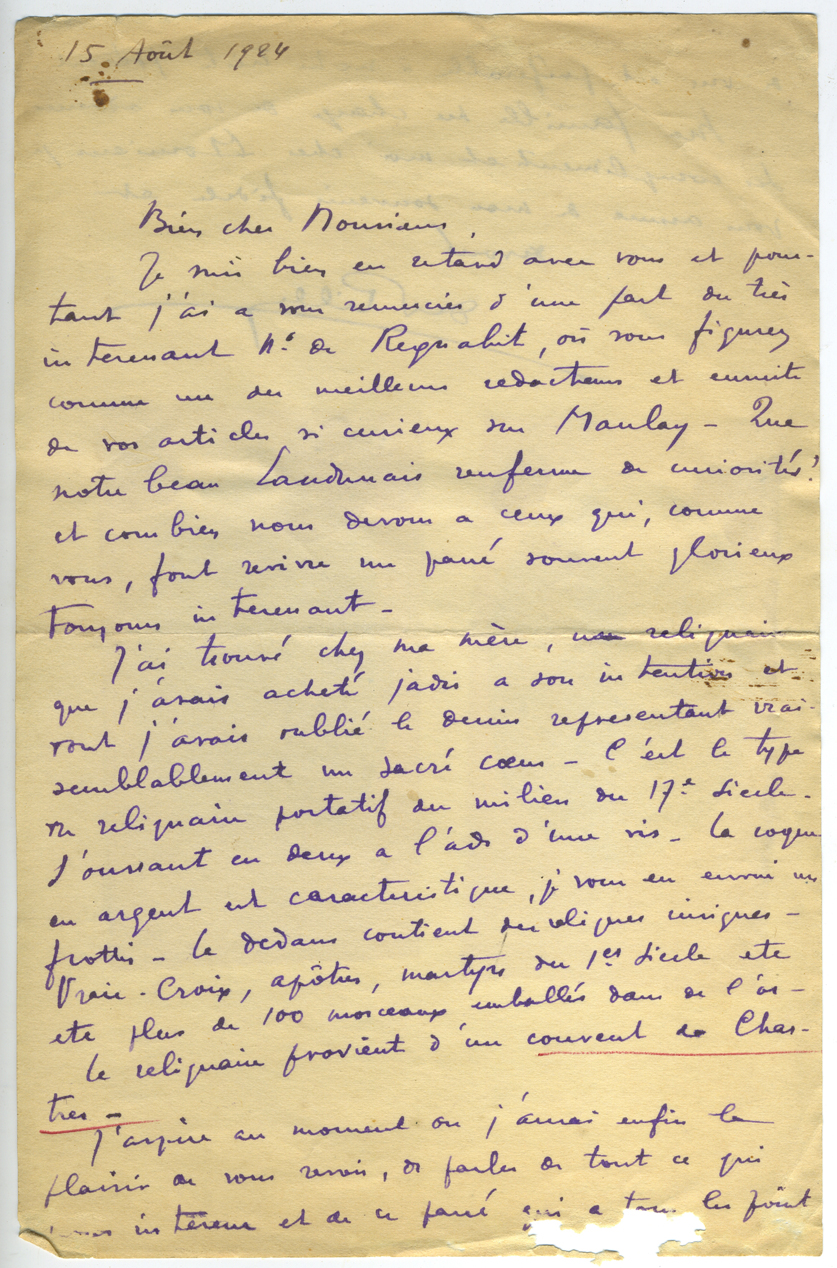 15 Août 1924
Bien cher Monsieur,
Je suis bien en retard avec vous et pour-
tant j'ai a vous remercier d'une part du très
interessant No de Regnabit, où vous figurez
comme un des meilleurs redacteurs et ensuite
de vos articles si curieux sur Maulay - Que
notre beau Loudunais renferme de curiosités!
et combien nous devons a ceux qui, comme
vous, font revivre un passé souvent glorieux
toujours interessant -
J'ai trouvé chez ma mère, un reliquaire
que j'avais acheté jadis a son intention et
dont j'avais oublié le dessin representant vrai-
semblablement un sacré cœur - C'est le type
du reliquaire portatif du milieu du 17e siecle -
s'ouvrant en deux a l'aide d'une vis - la coque
en argent est caracteristique, je vous en envoi un
frottis - le dedans contient des reliques insignes -
Vraie-Croix, apôtres, martyrs du 1er siecle etc
etc plus de 100 morceaux emballés dans de l'or -
Le reliquaire provient d'un couvent de Char-
tres -
J'aspire au moment ou j'aurai enfin le
plaisir de vous revoir, de parler de tout ce qui
interesse et de ce passé qui a tous les point